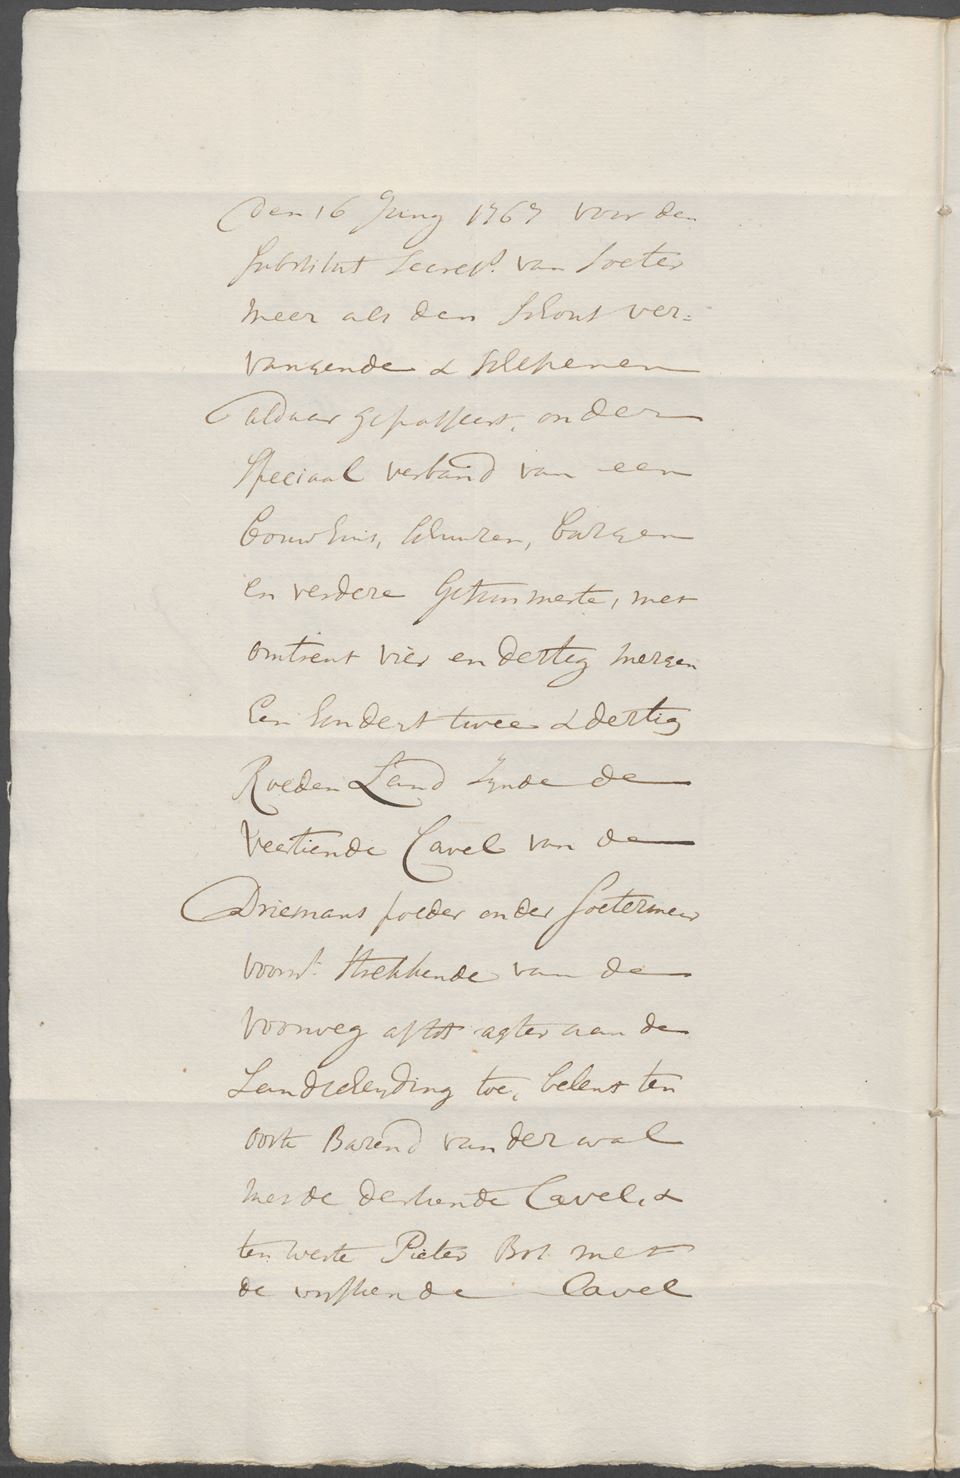 den 16 Juny 1767 voor den
Substitut Secret.s van Soeter
meer als den Schout ver=
vangende & Schepenen
aldaar gepasseert, onder
Speciaal verband van een
Bouwhuis, Schuuren, Bargen
en verdere Getimmerte, met
omtrent vier en dertig mergen
Een hondert twee & dertig
Roeden Land zynde de
Veertiende Cavel van de
Driemans polder onder Soetermeer
voorn.t strekkende van de
Voorweg af tot agter aan de
Landscheyding toe, belent ten
ooste Barend van der wal
met de dertiende Cavel, &
ten weste Pieter Bol met
de vyftiende Cavel